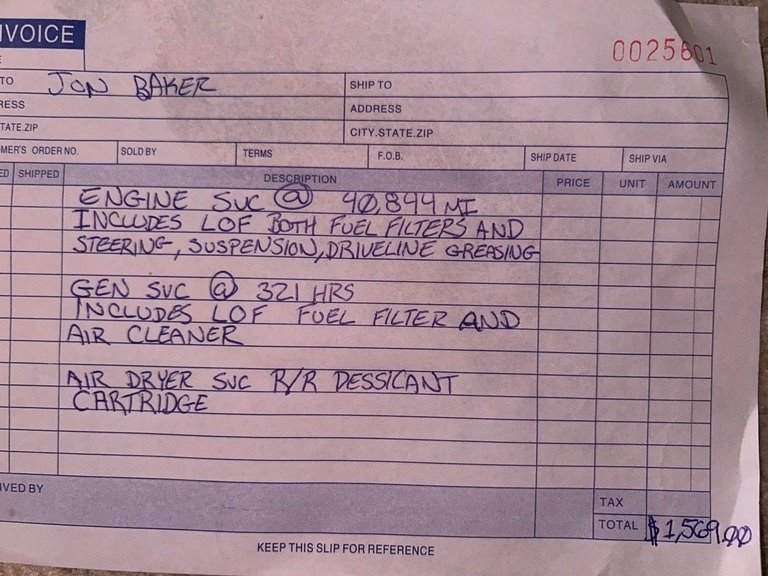 NVOICE
0025601
TO JON BAKER
SHIP TO
RESS
ADDRESS
TATE.ZIP
CITY.STATE.ZIP
MER'S ORDER NO. SOLD BY TERMS F.O.B. SHIP DATE SHIP VIA
ED SHIPPED DESCRIPTION PRICE UNIT AMOUNT
ENGINE SVC @ 40,844 MI
INCLUDES LOF BOTH FUEL FILTERS AND
STEERING, SUSPENSION, DRIVELINE GREASING
GEN SVC @ 321 HRS
INCLUDES LOF FUEL FILTER AND
AIR CLEANER
AIR DRYER SVC R/R DESSICANT
CARTRIDGE
IVED BY
TAX
TOTAL $1,569.00
KEEP THIS SLIP FOR REFERENCE